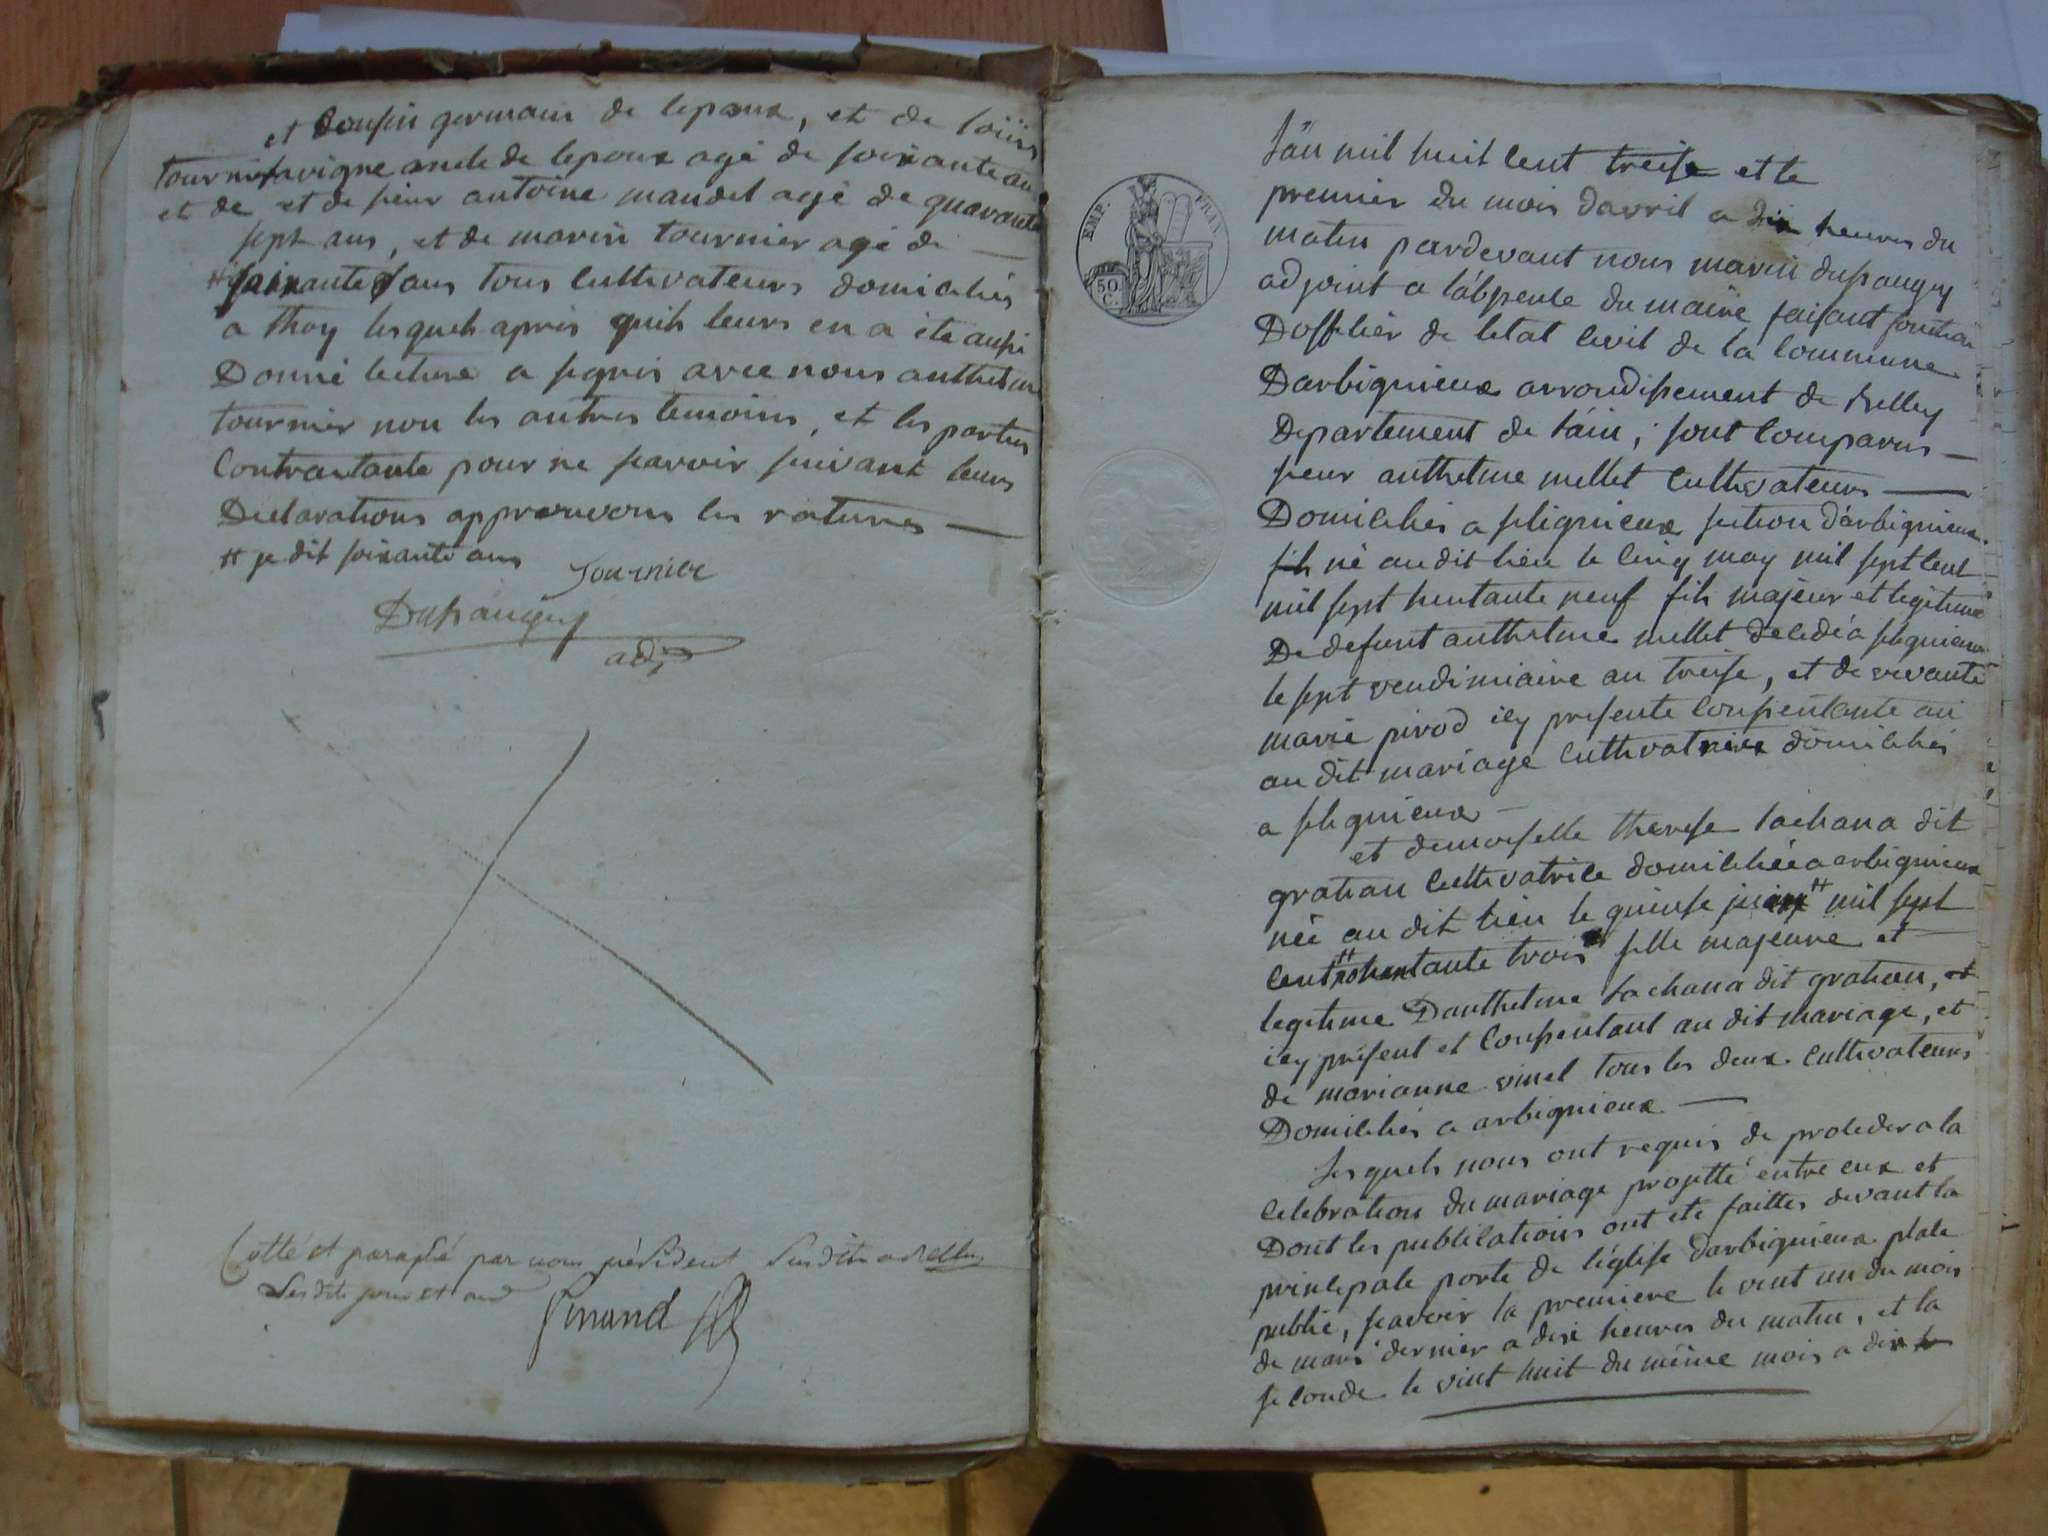 et Cousin germain de lepoux, et de loüis
tournier favigne oncle de lepoux agé de soixante ans
et de et de sieur antoine maudet agé de quarante
sept ans, et de marin tournier agé de
# soixante ans tous Cultivateurs domicilies
a thoy lesquels apris quils leurs en a ete aussi
Donné lecture a signés avec nous anthelme
tournier non les autres temoins, et les parties
Contractante pour ne scavoir suivant leurs
Declarations approuvons les ratures
# je dit soixante ans
Tournier
Dupaugey
adj
Cotté et paraphé par nous président Susdit a Belley
Lesdits jour et an
Genand
EMP. FRAN.
50 C.
Lán mil huit Cent treise et le
premier du mois davril a dix heures du
matin pardevant nous marin dupaugey
adjoint a lábsence du maire faisant fonction
Dofficier de letat Civil de la Commune
Darbignieux arrondissement de belley
Departement de láin, sont Comparus
sieur anthelme millet Cultivateurs
Domicilies a sllignieux section dárbignieux
fils né au dit lieu le Cinq may mil sept Cent
mil sept huntante neuf fils majeur et legitime
De defunt anthelme millet decedé a slignieux
le sept vendimiaire an treise, et de vivante
marie pivod icy presente Consentante au
au dit mariage Cultivatrice domicilies
a slignieux
et demoiselle therese lachana dit
gratian Cultivatrice domiciliée a arbignieux
née au dit lieu le quinse juin # mil sept
Cent # huntante trois fille majeure et
legitime Danthelme lachana dit gratian, et
icy présent et Consentant au dit mariage, et
de marianne vinel tous les deux Cultivateurs
Domicilies a arbignieux
Lesquels nous ont requis de proceder a la
Celebration du mariage projetté entre eux et
Dont les publications ont ete faittes devant la
principale porte de léglise darbignieux place
public, scavoir la premiere le vint un du mois
de mars dernier a dix heures du matin, et la
seconde le vint huit du même mois a dix h